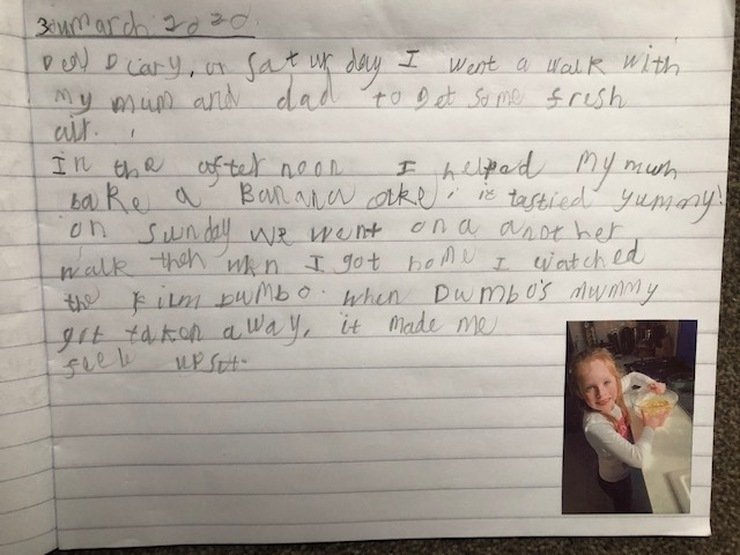 30th march 2020
Dear Diary, on Saturday I went a walk with
my mum and dad to get some fresh
air.
In the after noon I helped my mum
bake a Banana cake, it tastied yummy!
on Sunday we went on a another
walk then wen I got home I watched
the Film Dumbo. when Dumbo's mummy
got taken away, it made me
feel upset.